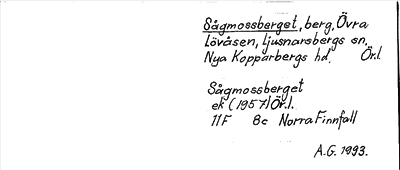 Sågmossberget, berg, Övra
Lövåsen, Ljusnarsbergs sn.
Nya Kopparbergs hd. Ör.l.
Sågmossberget
ek (1957) Ör.l.
11F 8c Norra Finnfall
A.G. 1993.